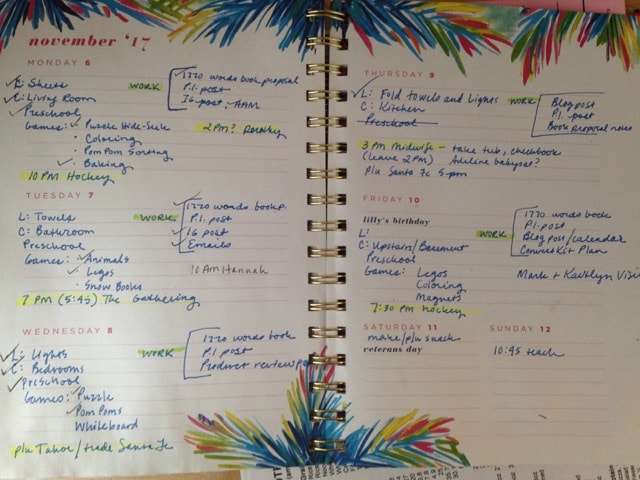 november '17
MONDAY 6
L: Sheets
C: Living Room
Preschool
Games: Puzzle Hide-Seek
• Coloring
• Pom Pom Sorting
• Baking
WORK
1770 words book proposal
P.I. post
IG post, AAM
2 PM? Dorothy
10 PM Hockey
TUESDAY 7
L: Towels
C: Bathroom
Preschool
Games: Animals
• Legos
• Snow Books
WORK
1770 words book p.
P.I. post
IG post
Emails
10 AM Hannah
7 PM (5:45) The Gathering
WEDNESDAY 8
L: Lights
C: Bedrooms
Preschool
Games: Puzzle
Pom Poms
Whiteboard
WORK
1770 words book
P.I. post
Product review
p/u Tahoe/trade Santa Fe
THURSDAY 9
L: Fold towels and Lights
C: Kitchen
Preschool
WORK
Blog post
P.I. post
Book proposal notes
3 PM Midwife - take tub, checkbook
(leave 2 PM) Adeline babysat?
p/u Santa Fe 5 pm
FRIDAY 10
lilly's birthday
L:
C: Upstairs/Basement
Preschool
Games: Legos
Coloring
Magnets
WORK
1770 words book
P.I. post
Blog post/calendar
ConvertKit Plan
Mark + Kaitlyn
7:30 PM hockey
SATURDAY 11
make/p/u snack
veterans day
SUNDAY 12
10:45 teach